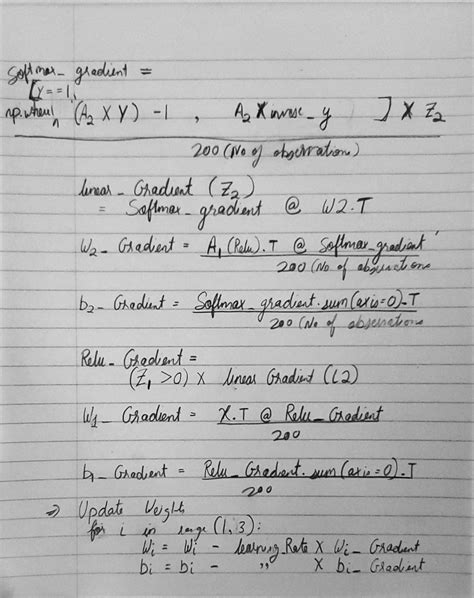 Softmax_gradient =
[Y==1,
np.where( (A2 X Y) -1 , A2 X inverse_y ] X Z2
200 (No of observation)
linear_Gradient (Z2)
= Softmax_gradient @ W2.T
W2_Gradient = A1(Relu).T @ Softmax_gradient
200 (No. of observations
b2_Gradient = Softmax_gradient.sum(axis=0).T
200 (No of observations
Relu_Gradient =
(Z1 >0) X linear Gradient (L2)
W1_Gradient = X.T @ Relu_Gradient
200
b1_Gradient = Relu_Gradient.sum(axis=0).T
200
⇒ Update Weights
for i in range (1,3):
Wi = Wi - learning_Rate X Wi_Gradient
bi = bi - " X bi_Gradient